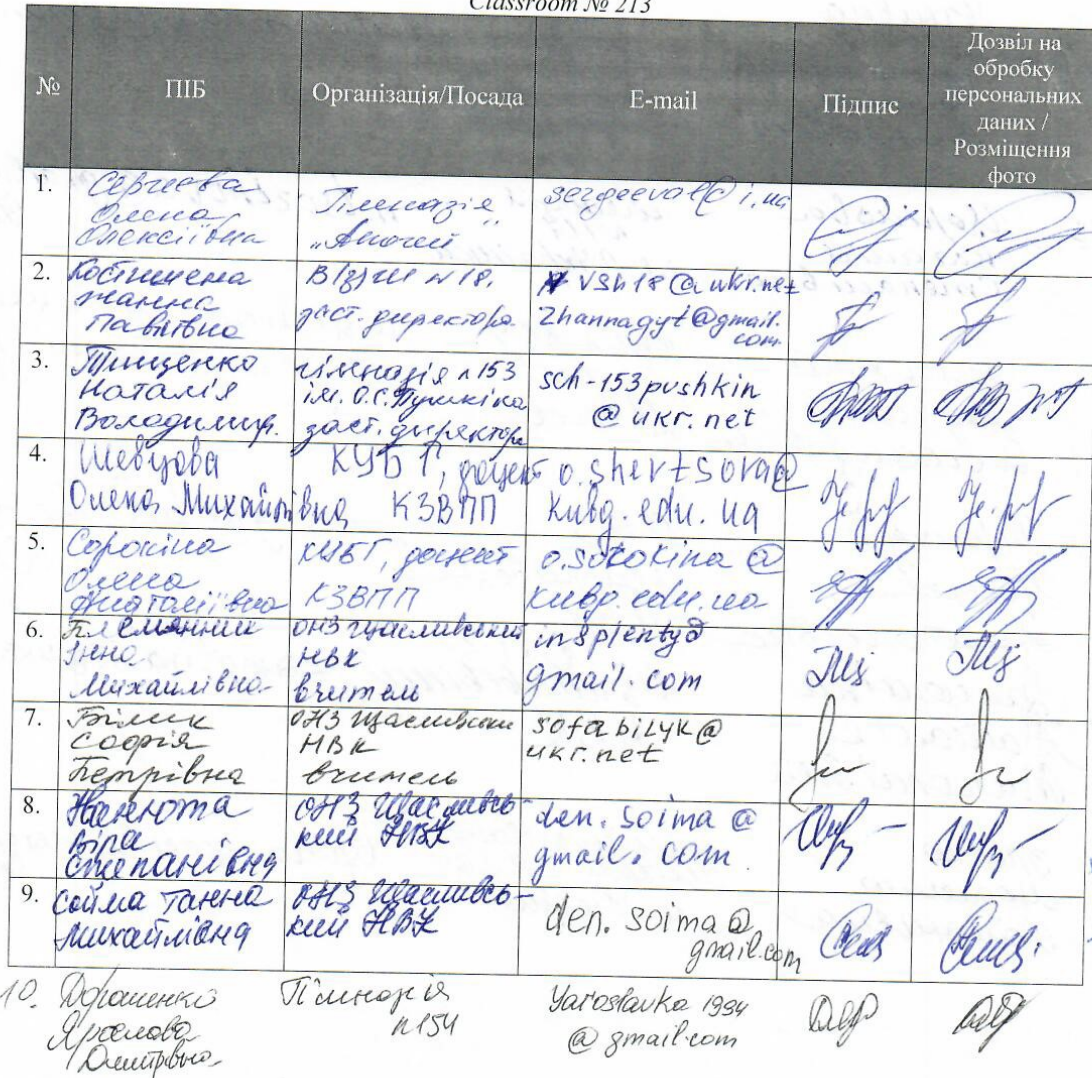 Classroom № 213
№
ПІБ
Організація/Посада
E-mail
Підпис
Дозвіл на
обробку
персональних
даних /
Розміщення
фото
1.
Сергєєва
Олена
Олексіївна
Гімназія
sergeeval@i.ua
2.
Жанна
Павлівна
В(з)ш №18.
заст. директора
vsh18@ukr.net
zhannagyt@gmail.
com
3.
Тищенко
Наталія
Володимир.
гімназія №153
ім. О.С. Пушкіна
заст. директора
sch-153pushkin
@ukr.net
4.
Шевцова
Олена Михайлівна
КУБГ, доцент
КЗВПП
o.shevtsova@
kubg.edu.ua
5.
Сорокіна
Олена
Анатоліївна
КУБГ, доцент
КЗВПП
o.sorokina@
kubg.edu.ua
6.
Племянник
Інна
Михайлівна
ОНЗ Щасливський
НВК
вчитель
insplenty@
gmail.com
7.
Білик
Софія
Петрівна
ОНЗ Щасливський
НВК
вчитель
sofabilyk@
ukr.net
8.
Віра
Степанівна
ОНЗ Щасливсь-
кий НВК
den.soima@
gmail.com
9.
Сойма Ганна
Михайлівна
ОНЗ Щасливсь-
кий НВК
den.soima@
gmail.com
10.
Дорошенко
Ярослава
Дмитрівна
Гімназія
№154
Yaroslavka1994
@gmail.com